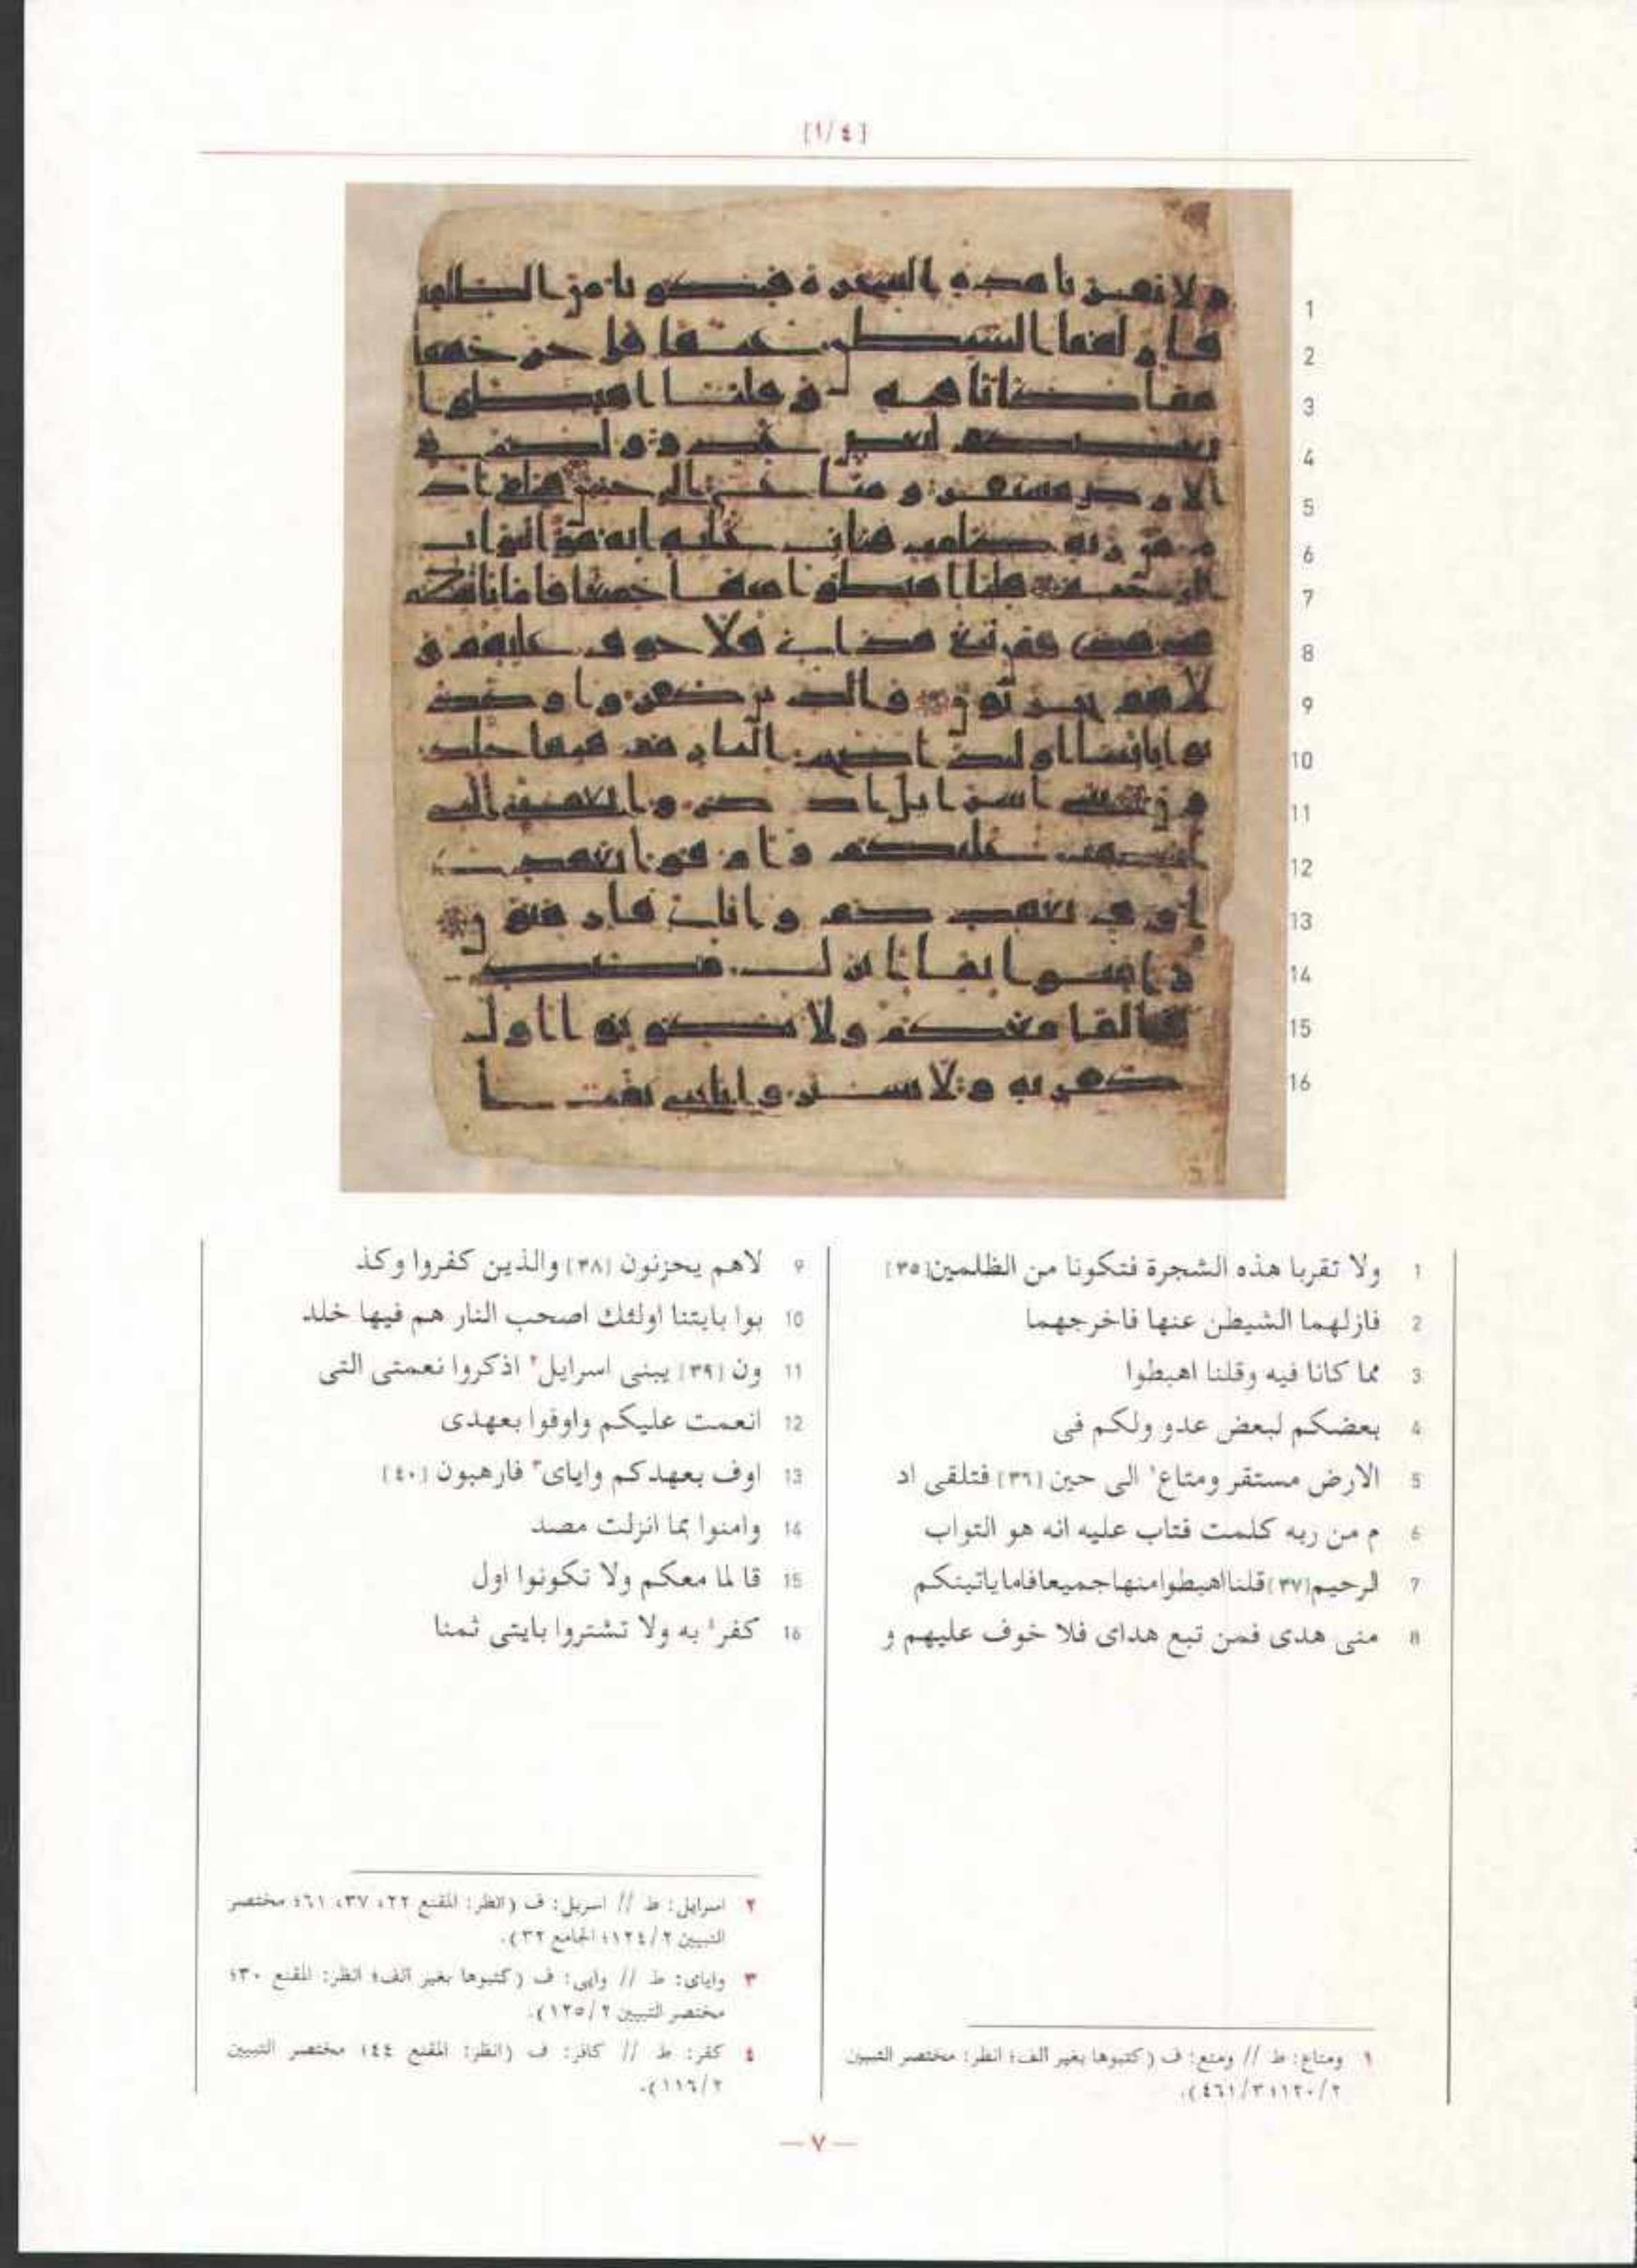 [١/٤]
1
2
3
4
5
6
7
8
9
10
11
12
13
14
15
16
1 ولا تقربا هذه الشجرة فتكونا من الظلمين [٣٥]
2 فازلهما الشيطن عنها فاخرجهما
3 مما كانا فيه وقلنا اهبطوا
4 بعضكم لبعض عدو ولكم فى
5 الارض مستقر ومتاع١ الى حين [٣٦] فتلقى اد
6 م من ربه كلمت فتاب عليه انه هو التواب
7 الرحيم [٣٧] قلنا اهبطوا منها جميعا فاما ياتينكم
8 منى هدى فمن تبع هداى فلا خوف عليهم و
9 لاهم يحزنون [٣٨] والذين كفروا وكذ
10 بوا بايتنا اولئك اصحب النار هم فيها خلد
11 ون [٣٩] يبنى اسرايل٢ اذكروا نعمتى التى
12 انعمت عليكم واوفوا بعهدى
13 اوف بعهدكم واياى٣ فارهبون [٤٠]
14 وامنوا بما انزلت مصد
15 قا لما معكم ولا تكونوا اول
16 كفر٤ به ولا تشتروا بايتى ثمنا
١ ومتاع: ط // ومتع: ف (كتبوها بغير الف؛ انظر: مختصر التبيين
٢/١٢٠؛ ٣/٤٦١).
٢ اسرايل: ط // اسريل: ف (انظر: المقنع ٢٢، ٣٧، ٦١؛ مختصر
التبيين ٢/١٢٤؛ الجامع ٣٢).
٣ واياى: ط // وايى: ف (كتبوها بغير الف؛ انظر: المقنع ٣٠؛
مختصر التبيين ٢/١٢٥).
٤ كفر: ط // كافر: ف (انظر: المقنع ٤٤؛ مختصر التبيين
٢/١١٦).
— ٧ —